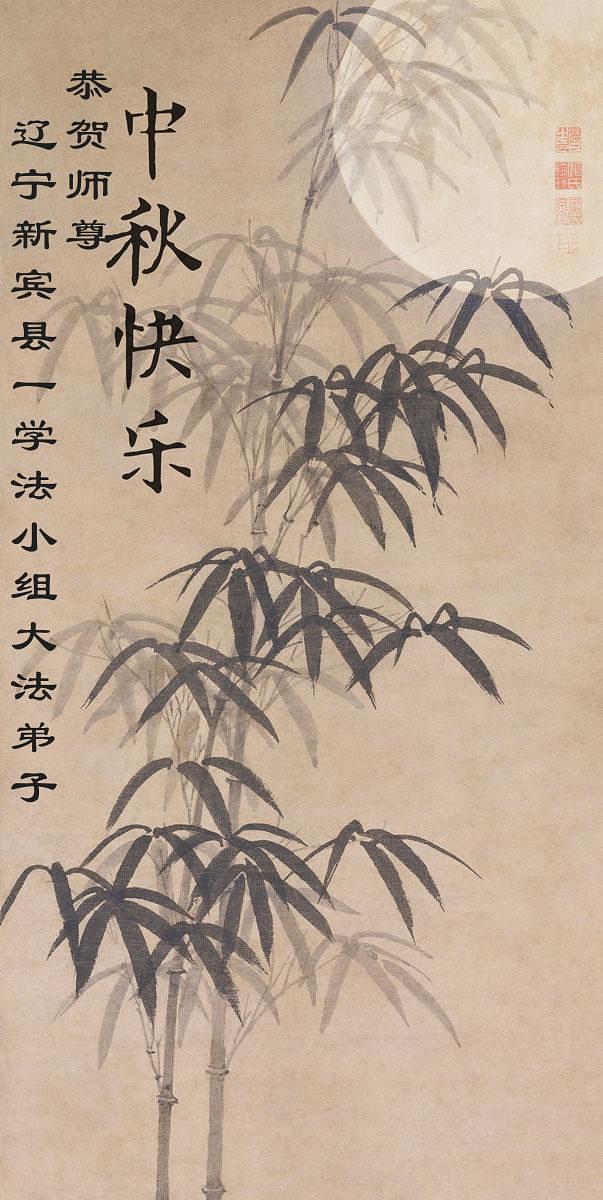 恭贺师尊
中秋快乐
辽宁新宾县一学法小组大法弟子